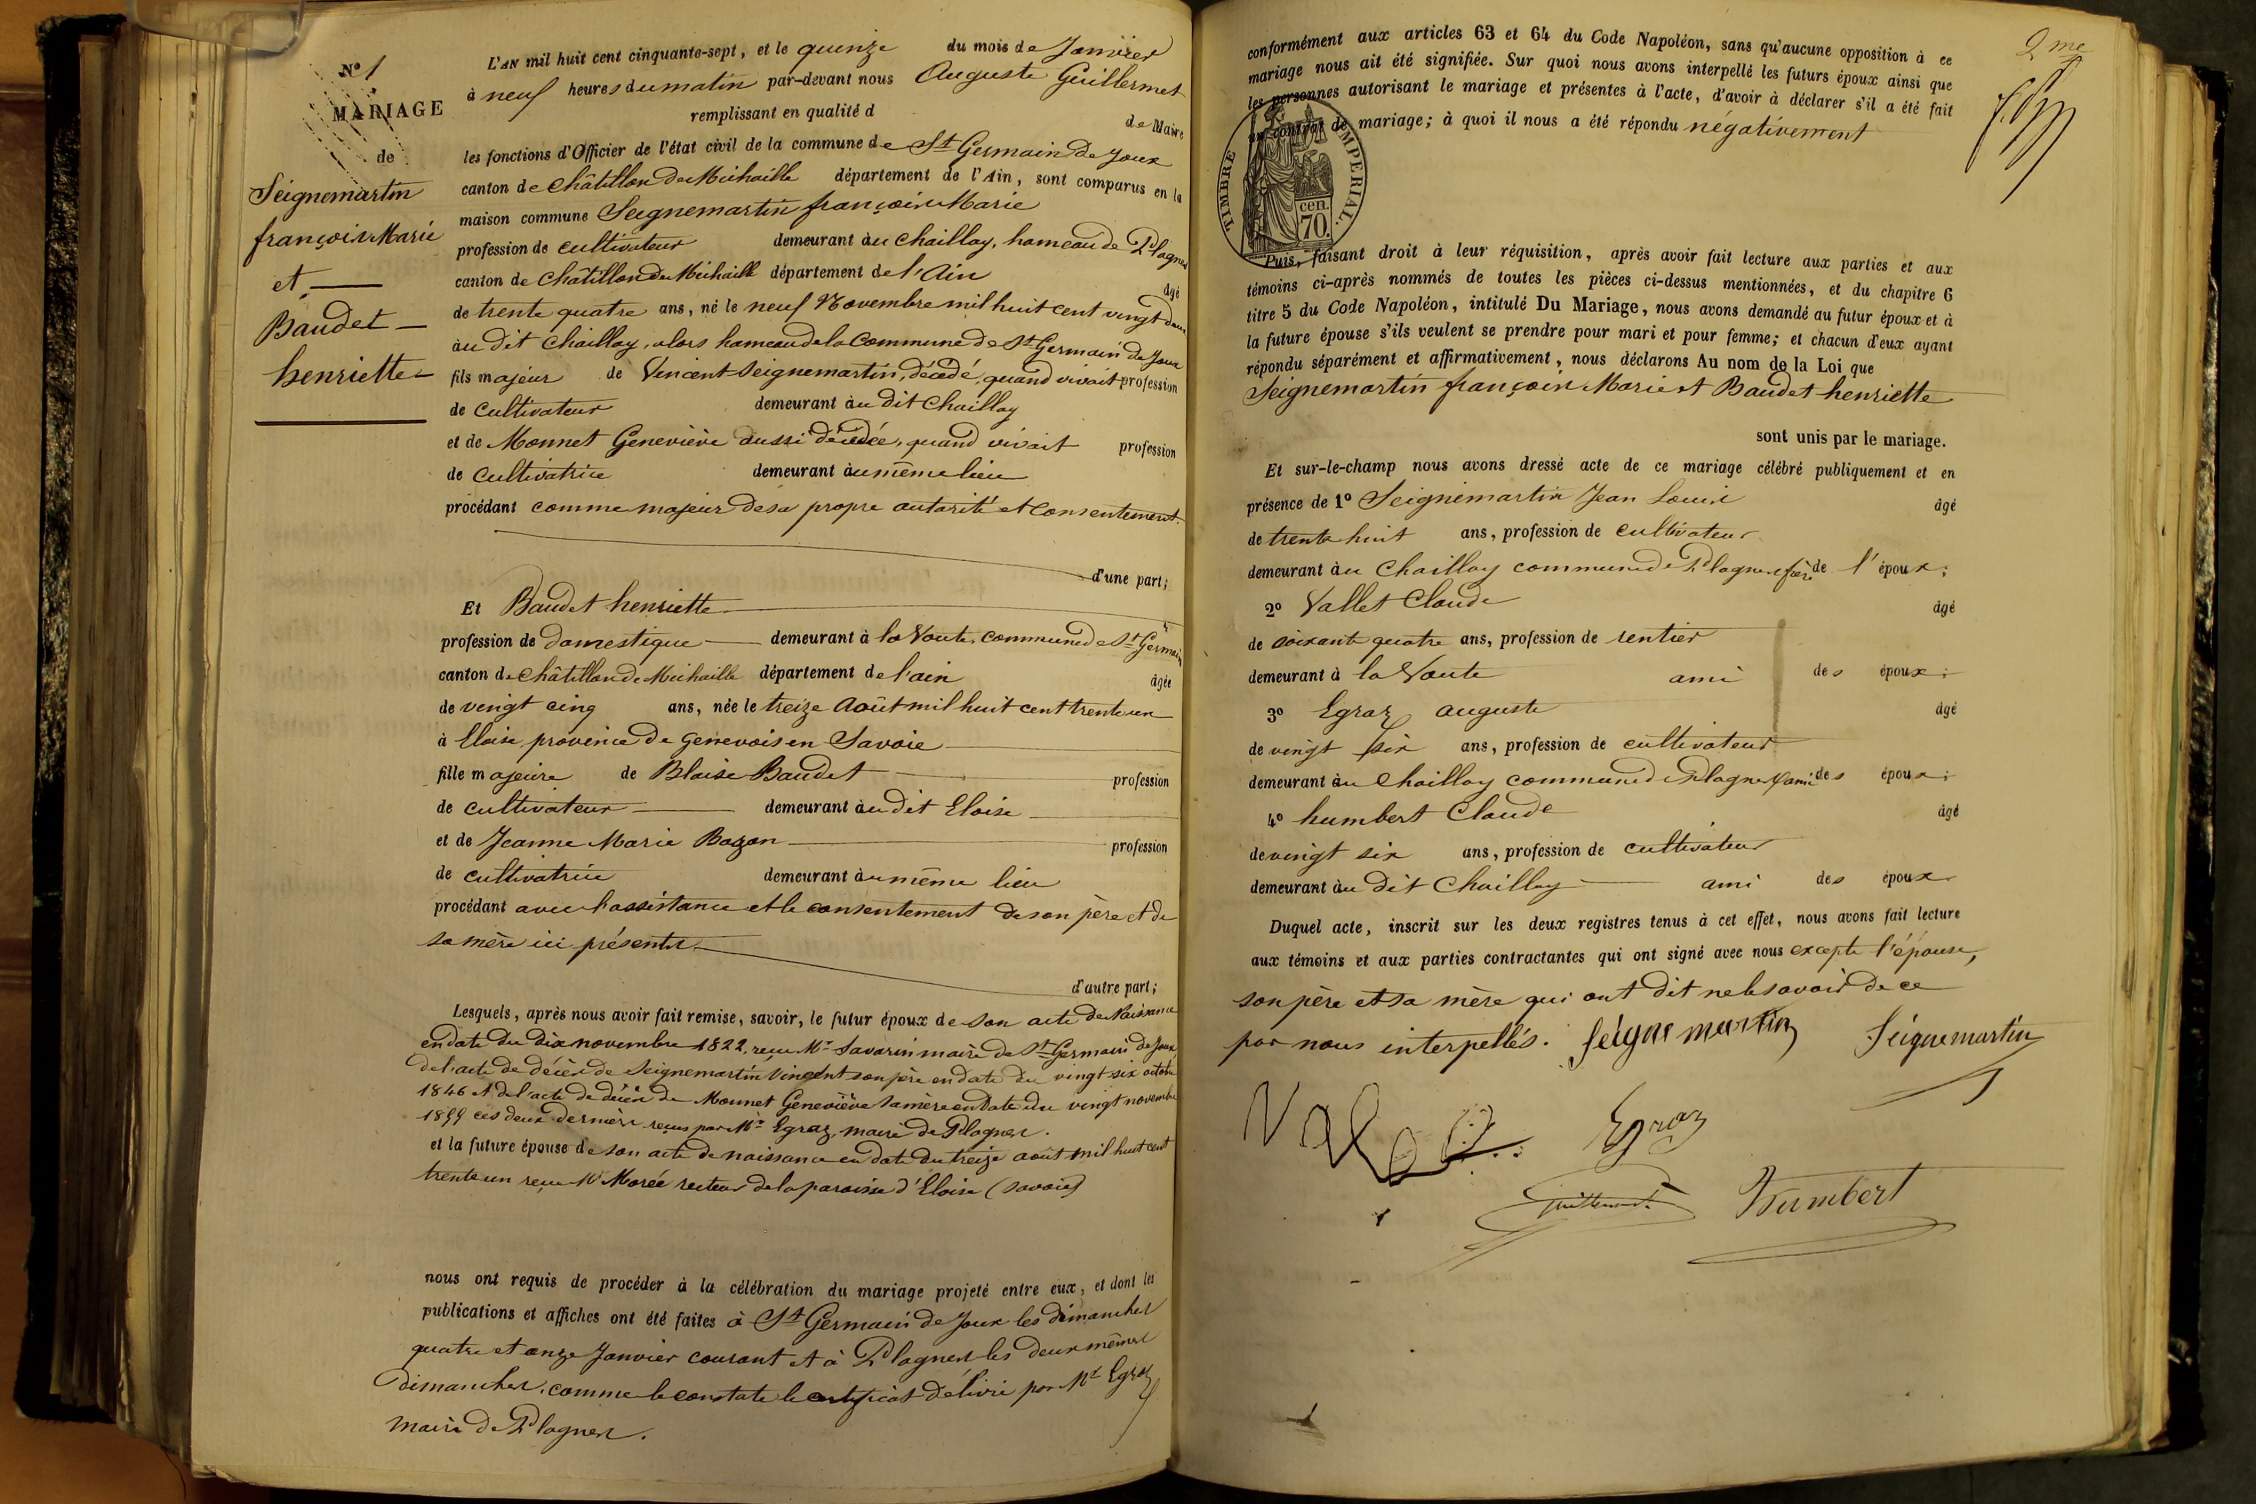 N° 1
MARIAGE
de
Seignemartin
françois Marie
et
Baudet
henriette
L'AN mil huit cent cinquante-sept, et le quinze du mois de Janvier
à neuf heures du matin par-devant nous Auguste Guillermet
remplissant en qualité d de Maire
les fonctions d'Officier de l'état civil de la commune de St Germain de Joux
canton de Châtillon de Michaille département de l'Ain, sont comparus en la
maison commune Seignemartin françois Marie
profession de cultivateur demeurant àu Chaillay, hameau de Plagnes
canton de Châtillon de Michaille département de l'Ain âgé
de trente quatre ans, né le neuf Novembre mil huit cent vingt deux
àu dit Chaillay, alors hameau de la Commune de St Germain de Joux
fils majeur de Vincent Seignemartin, décédé, quand vivait profession
de cultivateur demeurant àu dit Chaillay
et de Monnet Geneviève aussi décédée, quand vivait profession
de cultivatrice demeurant àu même lieu
procédant comme majeur de sa propre autorité et Consentement.
d'une part;
Et Baudet henriette
profession de domestique demeurant à la Voute, commune de St Germain
canton de Châtillon de Michaille département de l'ain âgée
de vingt cinq ans, née le treize Août mil huit cent trente un
à Eloise province de Genevois en Savoie
fille majeure de Blaise Baudet profession
de cultivateur demeurant àu dit Eloise
et de Jeanne Marie Bozon profession
de cultivatrice demeurant àu même lieu
procédant avec l'assistance et le consentement de son père et de
sa mère ici présents
d'autre part;
Lesquels, après nous avoir fait remise, savoir, le futur époux de son acte de Naissance
en date du dix novembre 1822, reçu Mr Savarin maire de St Germain de Joux,
de l'acte de décès de Seignemartin Vincent son père en date du vingt six octobre
1846 et de l'acte de décès de Monnet Geneviève sa mère en date du vingt novembre
ces deux derniers reçus par Mr Egraz, maire de Plagnes.
et la future épouse de son acte de naissance en date du treize août mil huit cent
trente un reçu Mr Morée recteur de la paroisse d'Eloise (savoie)
nous ont requis de procéder à la célébration du mariage projeté entre eux, et dont les
publications et affiches ont été faites à St Germain de Joux les dimanches
quatre et onze Janvier courant et à Plagnes les deux mêmes
dimanches, comme le constate le certificat délivré par Mr Egraz
maire de Plagnes.
2me
conformément aux articles 63 et 64 du Code Napoléon, sans qu'aucune opposition à ce
mariage nous ait été signifiée. Sur quoi nous avons interpellé les futurs époux ainsi que
les personnes autorisant le mariage et présentes à l'acte, d'avoir à déclarer s'il a été fait
un contrat de mariage; à quoi il nous a été répondu négativement
TIMBRE IMPERIAL.
cen.
70.
Puis, faisant droit à leur réquisition, après avoir fait lecture aux parties et aux
témoins ci-après nommés de toutes les pièces ci-dessus mentionnées, et du chapitre 6
titre 5 du Code Napoléon, intitulé Du Mariage, nous avons demandé au futur époux et à
la future épouse s'ils veulent se prendre pour mari et pour femme; et chacun d'eux ayant
répondu séparément et affirmativement, nous déclarons Au nom de la Loi que
Seignemartin françois Marie et Baudet henriette
sont unis par le mariage.
Et sur-le-champ nous avons dressé acte de ce mariage célébré publiquement et en
présence de 1° Seignemartin Jean Louis âgé
de trente huit ans, profession de cultivateur
demeurant àu Chaillay commune de Plagnes frère de l'époux;
2° Vallet Claude âgé
de soixante quatre ans, profession de rentier
demeurant à la Voute ami des époux;
3° Egraz auguste âgé
de vingt six ans, profession de cultivateur
demeurant àu Chaillay commune de Plagnes ami des époux;
4° humbert Claude âgé
de vingt six ans, profession de cultivateur
demeurant àu dit Chaillay ami des époux
Duquel acte, inscrit sur les deux registres tenus à cet effet, nous avons fait lecture
aux témoins et aux parties contractantes qui ont signé avec nous excepté l'épouse,
son père et sa mère qui ont dit ne le savoir de ce
par nous interpellés. Seigne martin Seignemartin
Egraz
Guillermet
Humbert